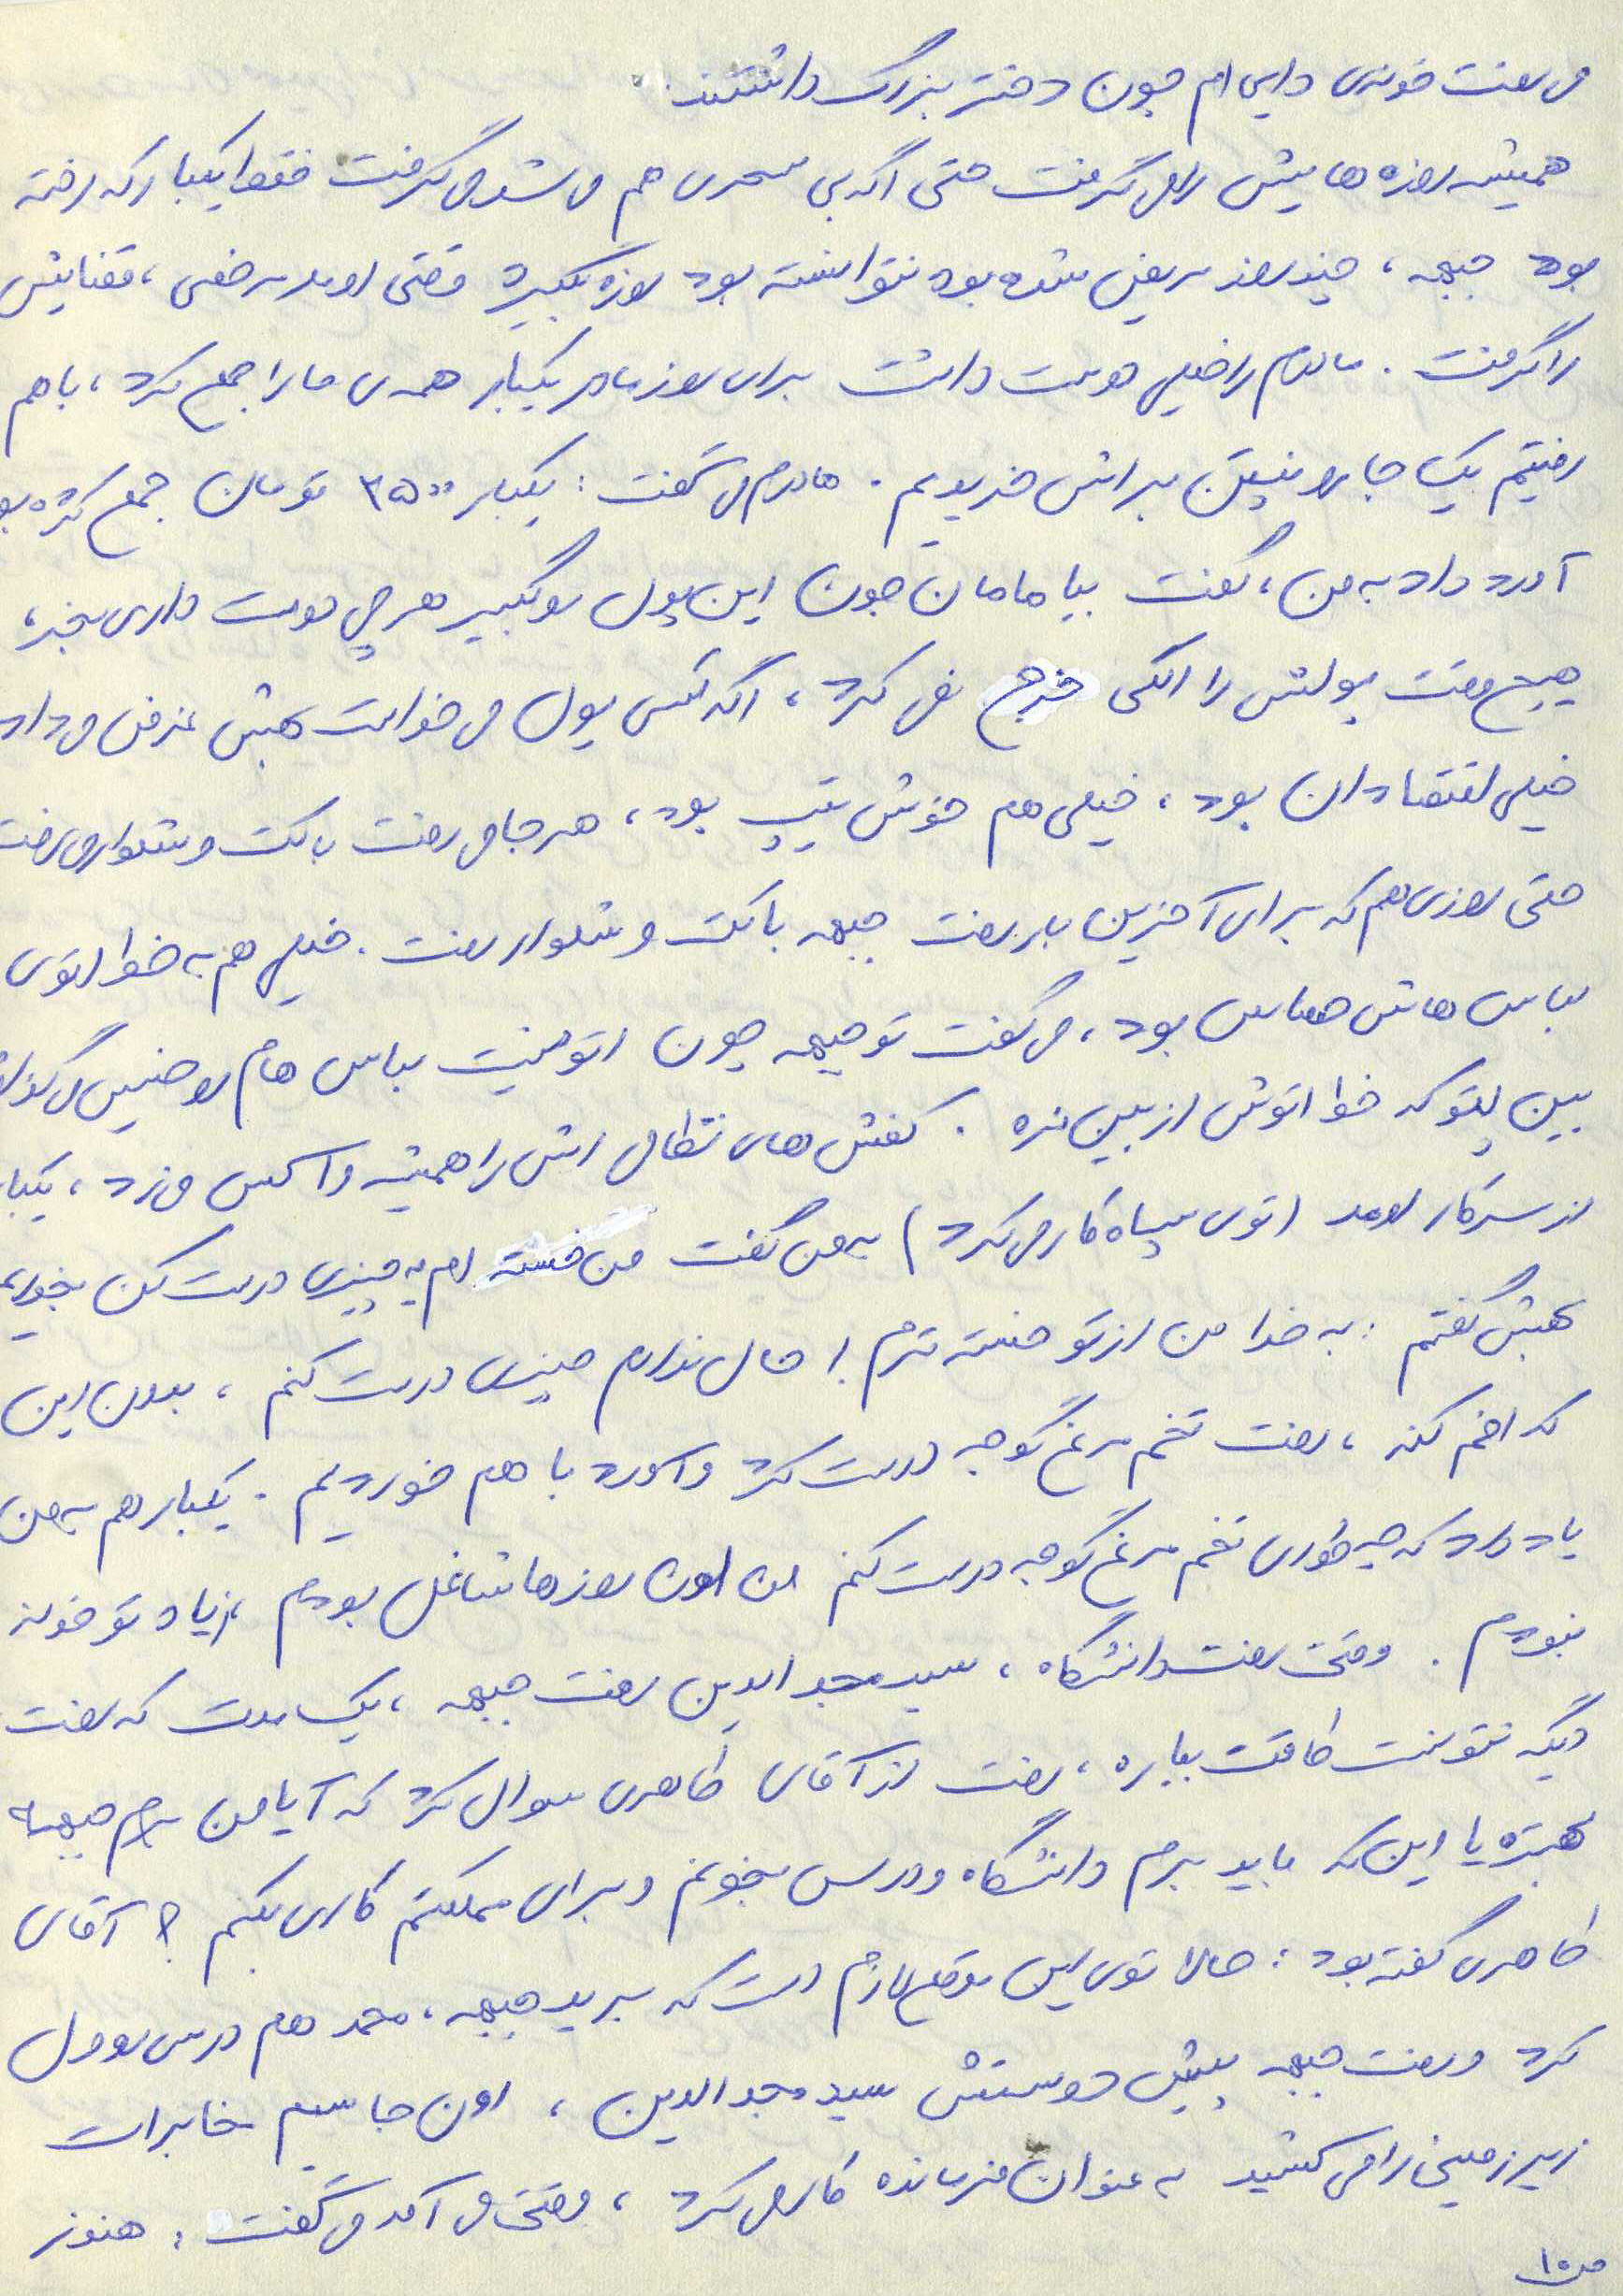 می رفت خونه‌ی دایی ام چون دختر بزرگ داشتند.
همیشه روزه هایش را می گرفت حتی اگه بی سحری هم می شد می گرفت فقط یکبار که رفته
بود جبهه، چند روز مریض شده بود نتوانسته بود روزه بگیره وقتی اومد مرخصی، قضایش
را گرفت. مادرم را خیلی دوست داشت برای روز مادر یکبار همه ی ما را جمع کرد، با هم
رفتیم یک جارو نپتن براش خریدیم. مادرم می گفت: یکبار ۲۵۰۰ تومان جمع کرده بو
آورد داد به من، گفت بیا مامان جون این پول رو بگیر هر چی دوست داری بخر،
هیچ وقت پولش را الکی خرج نمی کرد، اگه کسی پول می خواست بهش قرض می داد
خیلی اقتصاددان بود، خیلی هم خوش تیپ بود، هر جا می رفت با کت و شلوار می رفت
حتی روزی هم که برای آخرین بار رفت جبهه با کت و شلوار رفت. خیلی هم به خط اتوی
لباس هاش حساس بود، می گفت تو جبهه چون اتو نیست لباس هام رو خیس می کنم می ذارم
بین پتو که خط اتوش از بین نره. کفش های نظامی اش را همیشه واکس می زد، یکبار
از سر کار اومد (توی سپاه کار می کرد) به من گفت من خسته ام یه چیزی درست کن بخوریم
بهش گفتم: به خدا من از تو خسته ترم! حال ندارم چیزی درست کنم، بدون این
که اخم کنه، رفت تخم مرغ گوجه درست کرد و آورد با هم خوردیم. یکبار هم به من
یاد داد که چه طوری تخم مرغ گوجه درست کنم من اون روزها شاغل بودم، زیاد تو خونه
نبودم. وقتی رفت دانشگاه، سید مجدالدین رفت جبهه، یک مدت که رفت
دیگه نتونست طاقت بیاره، رفت از آقای طاهری سوال کرد که آیا من برم جبهه
بهتره یا این که باید برم دانشگاه و درس بخونم و برای مملکتم کاری بکنم؟ آقای
طاهری گفته بود: حالا توی این موقع لازم است که برید جبهه، محمد هم درس رو ول
کرد و رفت جبهه پیش دوستش سید مجدالدین، اون جا سیم مخابرات
زیرزمینی را می کشید به عنوان فرمانده کار می کرد، وقتی می آمد می گفت: هنوز
ص ۱۰